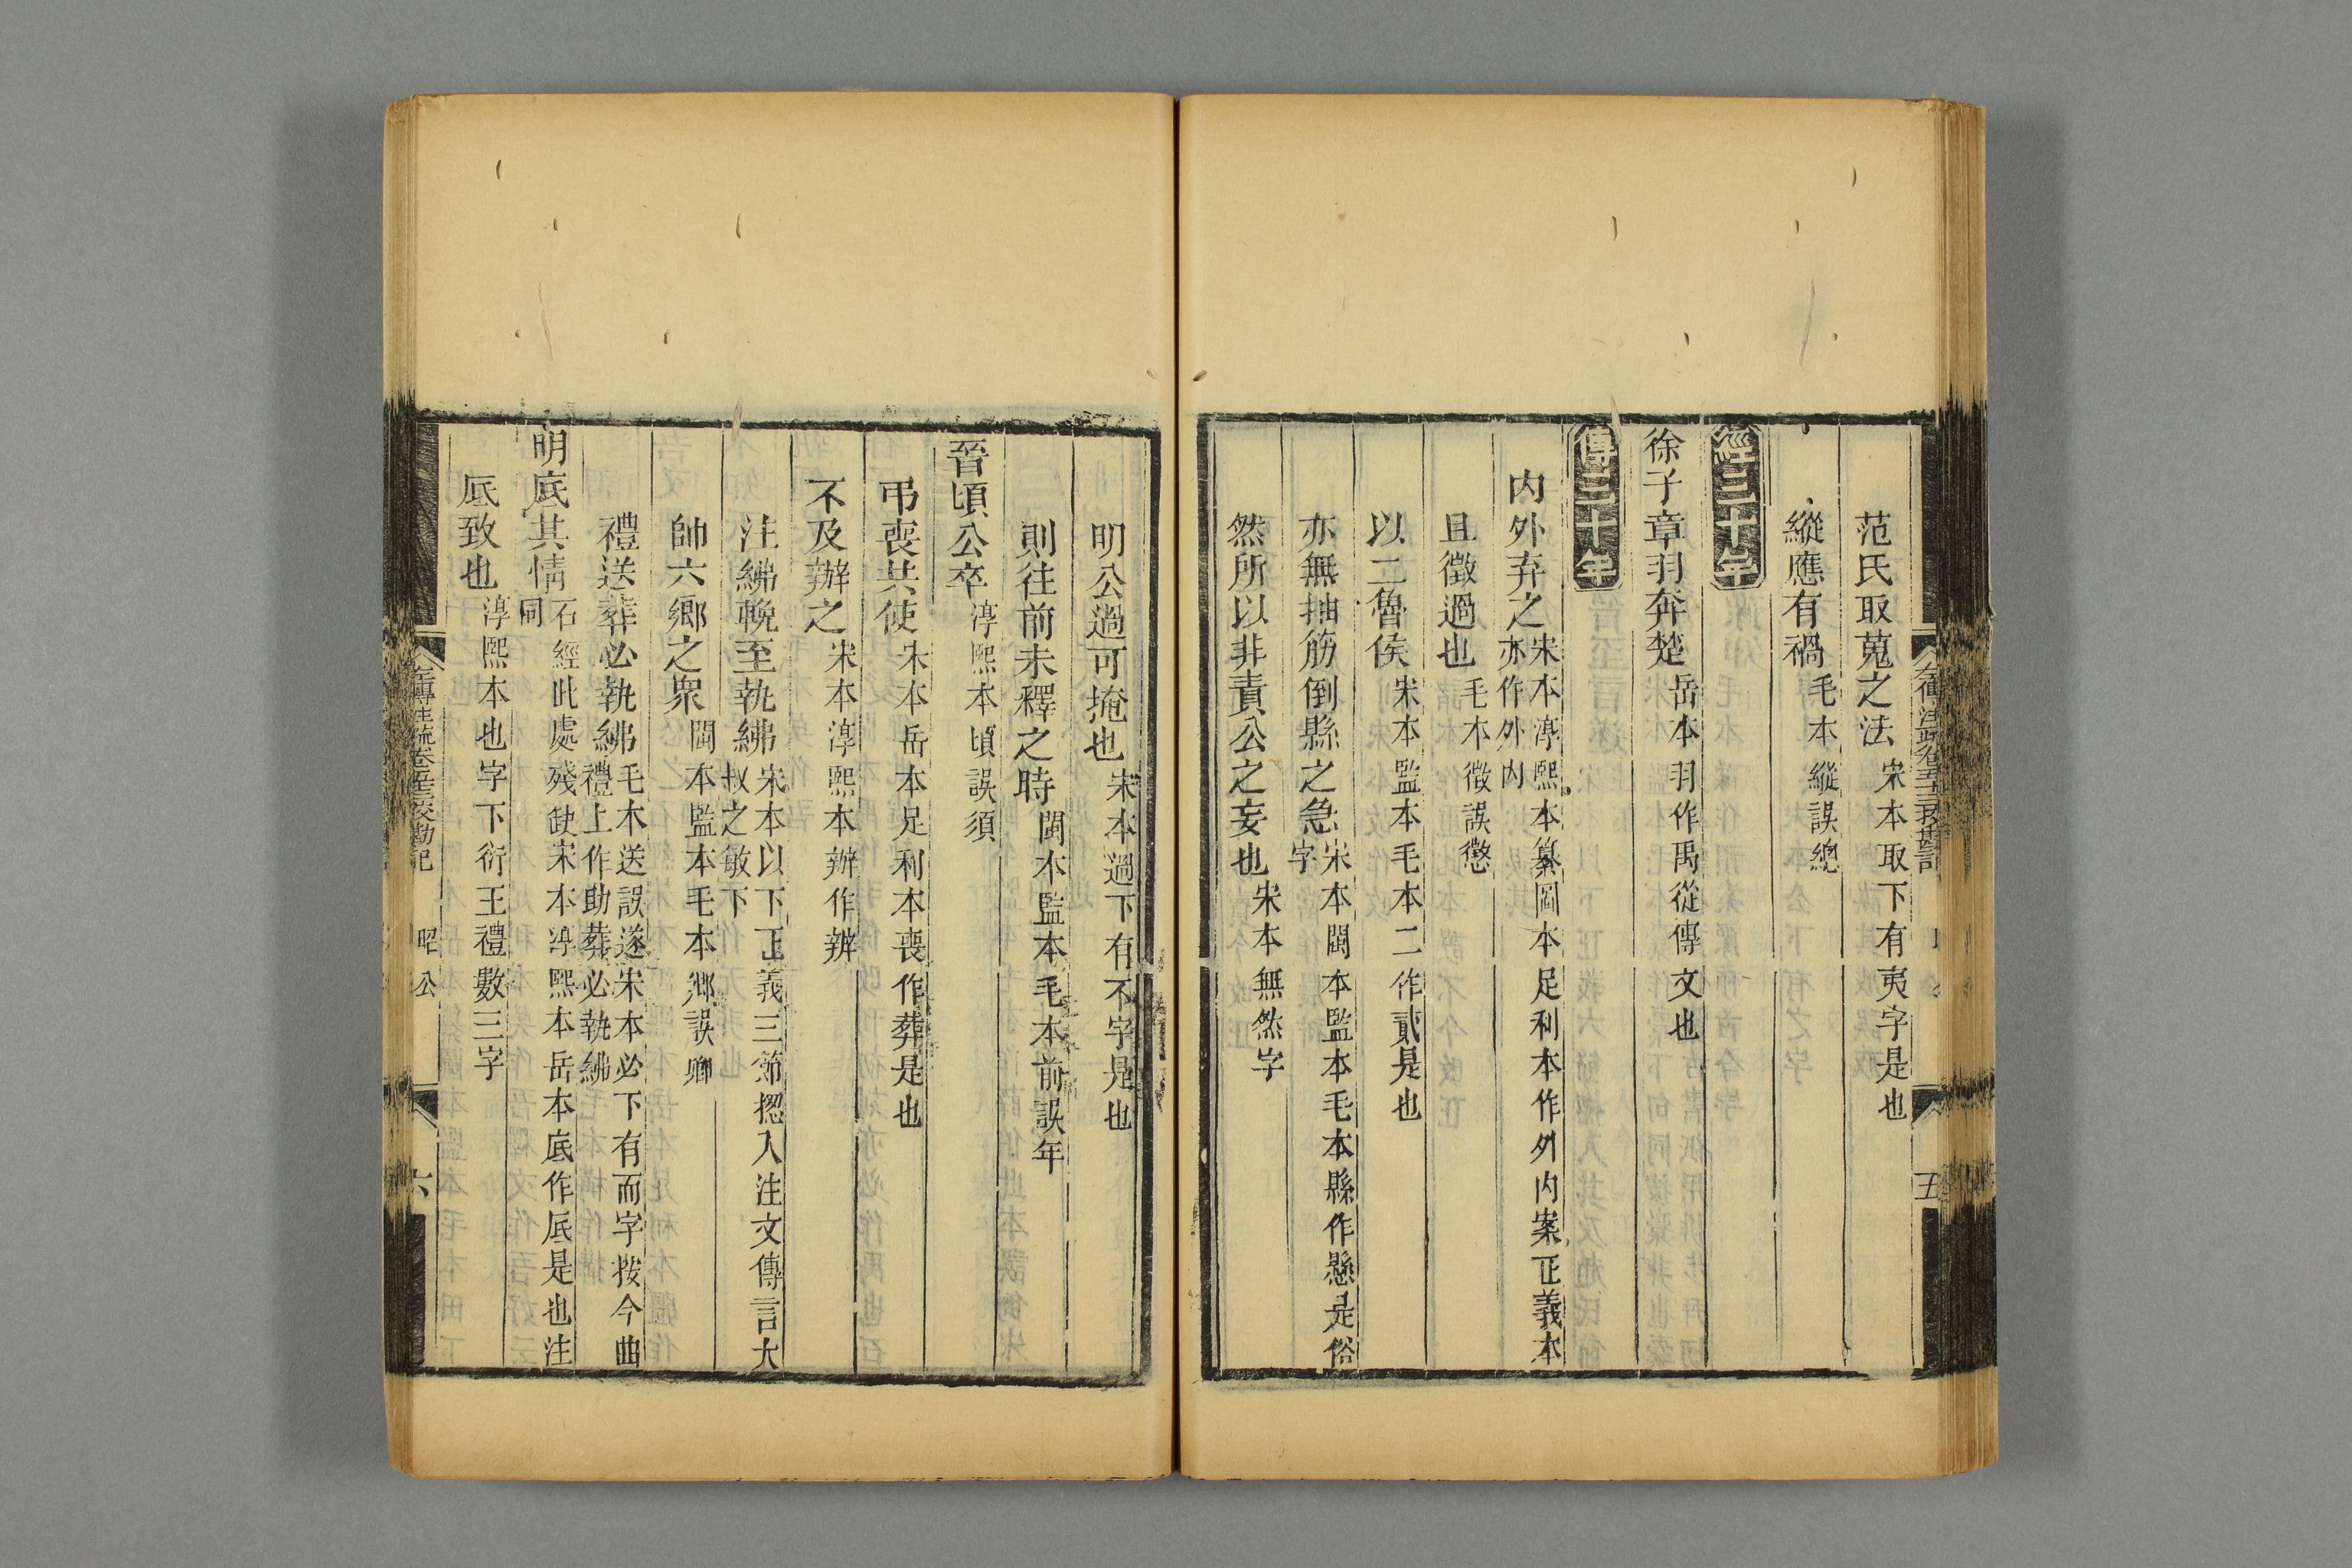 范氏取蒐之法宋本取下有夷字是也
縱應有禍毛本縱誤總
經三十年
徐子章羽奔楚岳本羽作禹從傳文也
傳三十年
內外弃之宋本淳熙本纂圖本足利本作外內案正義本亦作外內
且徵過也毛本徵誤懲
以二魯侯宋本監本毛本二作貳是也
亦無抽筋倒縣之急宋本閩本監本毛本縣作懸是俗字
然所以非責公之妄也宋本無然字
五
明公過可掩也宋本過下有不字是也
則往前未釋之時閩本監本毛本前誤年
晉頃公卒淳熙本頃誤須
弔喪共使宋本岳本足利本喪作葬是也
不及辦之宋本淳熙本辦作辨
注紼輓至執紼宋本以下正義三節揔入注文傳言大叔之敏下
帥六鄉之眾閩本監本毛本鄉誤卿
禮送葬必執紼毛本送誤遂宋本必下有而字按今曲禮上作助葬必執紼
明厎其情石經此處殘缺宋本淳熙本岳本底作厎是也注同
厎致也淳熙本也字下衍王禮數三字
左傳注疏卷五十三校勘記 昭公 六